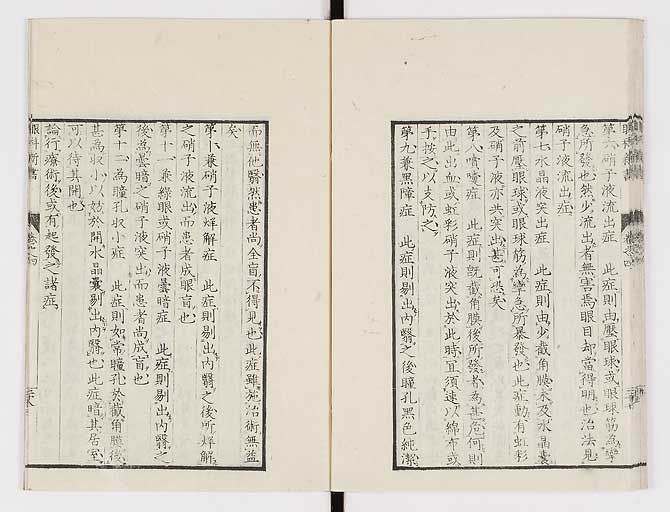 第六硝子液流出症 此症則由壓眼球或眼球筋為攣
急所發也然少流出者無害焉眼目却當得明也治法見
硝子液流出症
第七水晶液突出症 此症則由少截角膜未及水晶囊
之前壓眼球或眼球筋為攣急所暴發也此症動有虹彩
及硝子液亦共突出甚可恐矣
第八噴嚏症 此症則旣截角膜後所發者為甚危何則
由此出血或虹彩硝子液突出於此時宜須速以綿布或
手按之以支防之
第九兼黑障症 此症則剔出內翳之後瞳孔黑色純潔
而無他翳然患者尚全盲不得見也此症雖施治術無益
矣
第十兼硝子液烊解症 此症則剔出內翳之後所烊解
之硝子液流出而患者成眼盲也
第十一兼綠眼或硝子液曇暗症 此症則剔出內翳之
後為曇暗之硝子液突出而患者尚成盲也
第十二為瞳孔収小症 此症則如常瞳孔於截角膜後
甚為収小以妨於開水晶囊剔出內翳也此症暗其居室
可以待其開也
論行療術後或有起發之諸症
眼科新書
卷之四